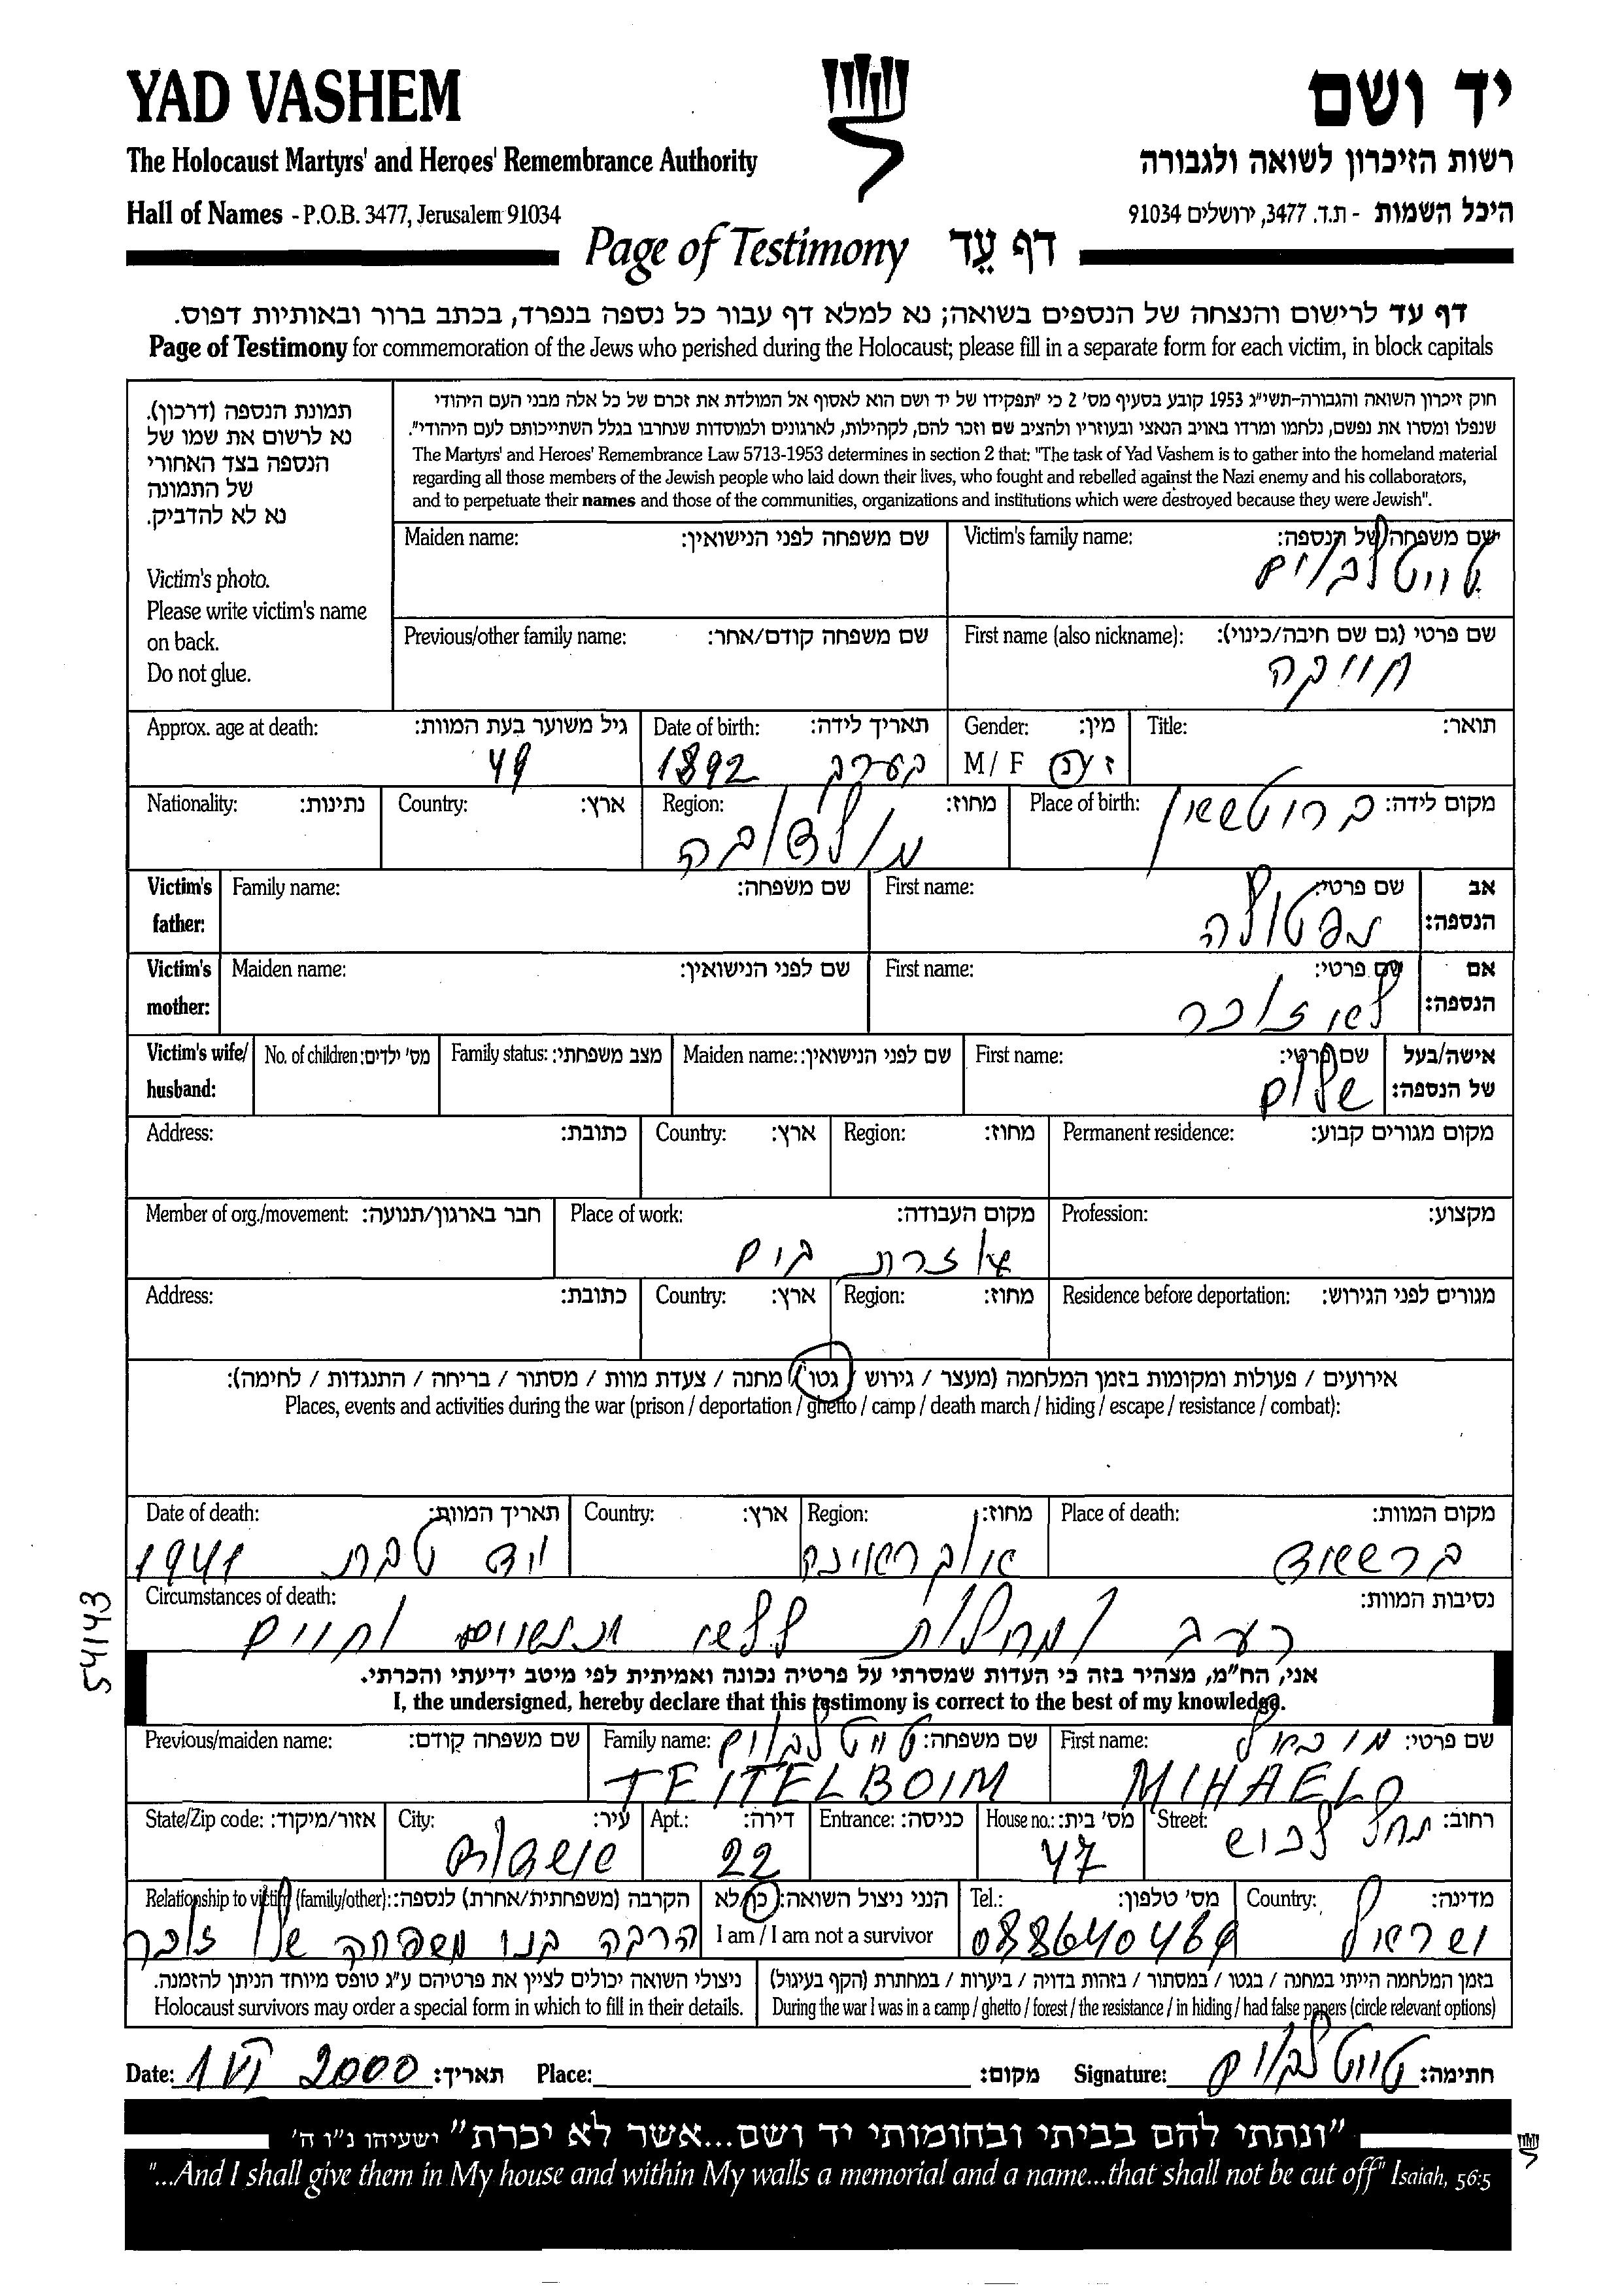 YAD VASHEM
יד ושם
The Holocaust Martyrs' and Heroes' Remembrance Authority
רשות הזיכרון לשואה ולגבורה
Hall of Names - P.O.B. 3477, Jerusalem 91034
היכל השמות - ת.ד. 3477, ירושלים 91034
Page of Testimony דף עֵד
דף עד לרישום והנצחה של הנספים בשואה; נא למלא דף עבור כל נספה בנפרד, בכתב ברור ובאותיות דפוס.
Page of Testimony for commemoration of the Jews who perished during the Holocaust; please fill in a separate form for each victim, in block capitals
תמונת הנספה (דרכון).
נא לרשום את שמו של
הנספה בצד האחורי
של התמונה
נא לא להדביק.
Victim's photo.
Please write victim's name
on back.
Do not glue.
חוק זיכרון השואה והגבורה-תשי"ג 1953 קובע בסעיף מס' 2 כי "תפקידו של יד ושם הוא לאסוף אל המולדת את זכרם של כל אלה מבני העם היהודי
שנפלו ומסרו את נפשם, נלחמו ומרדו באויב הנאצי ובעוזריו ולהציב שם וזכר להם, לקהילות, לארגונים ולמוסדות שנחרבו בגלל השתייכותם לעם היהודי".
The Martyrs' and Heroes' Remembrance Law 5713-1953 determines in section 2 that: "The task of Yad Vashem is to gather into the homeland material
regarding all those members of the Jewish people who laid down their lives, who fought and rebelled against the Nazi enemy and his collaborators,
and to perpetuate their names and those of the communities, organizations and institutions which were destroyed because they were Jewish".
Maiden name: שם משפחה לפני הנישואין:
Victim's family name: שם משפחה של הנספה:
טייטלבוים
Previous/other family name: שם משפחה קודם/אחר:
First name (also nickname): שם פרטי (גם שם חיבה/כינוי):
חייקה
Approx. age at death: גיל משוער בעת המוות: Date of birth: תאריך לידה: Gender: מין: Title: תואר:
49 1892 בערב M / F ז / נ
Nationality: נתינות: Country: ארץ: Region: מחוז: Place of birth: מקום לידה:
מולדובה
Victim's father: Family name: שם משפחה: First name: שם פרטי: אב הנספה:
Victim's mother: Maiden name: שם לפני הנישואין: First name: שם פרטי: אם הנספה:
לא זוכר
Victim's wife/ husband: No. of children: מס' ילדים: Family status: מצב משפחתי: Maiden name: שם לפני הנישואין: First name: שם פרטי: אישה/בעל של הנספה:
שלום
Address: כתובת: Country: ארץ: Region: מחוז: Permanent residence: מקום מגורים קבוע:
Member of org./movement: חבר בארגון/תנועה: Place of work: מקום העבודה: Profession: מקצוע:
עוזרת בית
Address: כתובת: Country: ארץ: Region: מחוז: Residence before deportation: מגורים לפני הגירוש:
אירועים / פעולות ומקומות בזמן המלחמה (מעצר / גירוש / גטו / מחנה / צעדת מוות / מסתור / בריחה / התנגדות / לחימה):
Places, events and activities during the war (prison / deportation / ghetto / camp / death march / hiding / escape / resistance / combat):
Date of death: תאריך המוות: Country: ארץ: Region: מחוז: Place of death: מקום המוות:
1941 יד טבת אוקראינה ברשאד
Circumstances of death: נסיבות המוות:
רעב ומחלות ללא
54143
אני, הח"מ, מצהיר בזה כי העדות שמסרתי על פרטיה נכונה ואמיתית לפי מיטב ידיעתי והכרתי.
I, the undersigned, hereby declare that this testimony is correct to the best of my knowledge.
Previous/maiden name: שם משפחה קודם: Family name: שם משפחה: טייטלבוים First name: שם פרטי: מיכאל
TEITELBOIM MIHAEL
State/Zip code: אזור/מיקוד: City: עיר: Apt.: דירה: Entrance: כניסה: House no.: מס' בית: Street: רחוב:
אשדוד 22 47 נחל לכיש
Relationship to victim (family/other): הקרבה (משפחתית/אחרת) לנספה: הנני ניצול השואה: כן/לא Tel.: מס' טלפון: Country: מדינה:
I am / I am not a survivor
הרבה בני משפחה שלא זוכר 088640469 ישראל
ניצולי השואה יכולים לציין את פרטיהם ע"ג טופס מיוחד הניתן להזמנה.
Holocaust survivors may order a special form in which to fill in their details.
בזמן המלחמה הייתי במחנה / בגטו / במסתור / בזהות בדויה / ביערות / במחתרת (הקף בעיגול)
During the war I was in a camp / ghetto / forest / the resistance / in hiding / had false papers (circle relevant options)
Date: 1 VI 2000 תאריך: Place: מקום: Signature: טייטלבוים חתימה:
"ונתתי להם בביתי ובחומותי יד ושם...אשר לא יכרת" ישעיהו נ"ו ה'
"...And I shall give them in My house and within My walls a memorial and a name...that shall not be cut off" Isaiah, 56:5